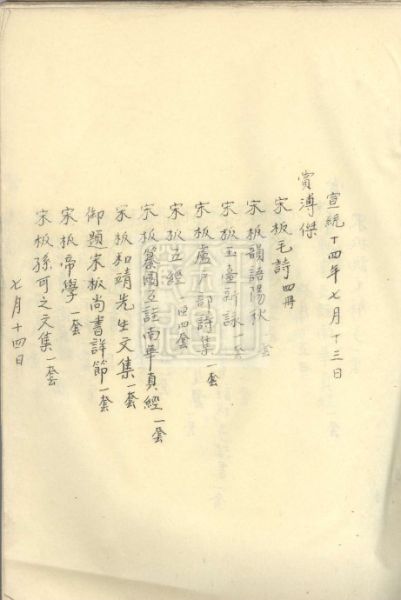 宣統十四年七月十三日
賞溥傑
宋板毛詩 四冊
宋板韻語陽秋 一套
宋板玉臺新詠 一套
宋板盧戶部詩集 一套
宋板五經 四套
宋板纂圖互註南華真經 一套
宋板和靖先生文集 一套
御題宋板尚書詳節 一套
宋板帝學 一套
宋板孫可之文集 一套
七月十四日